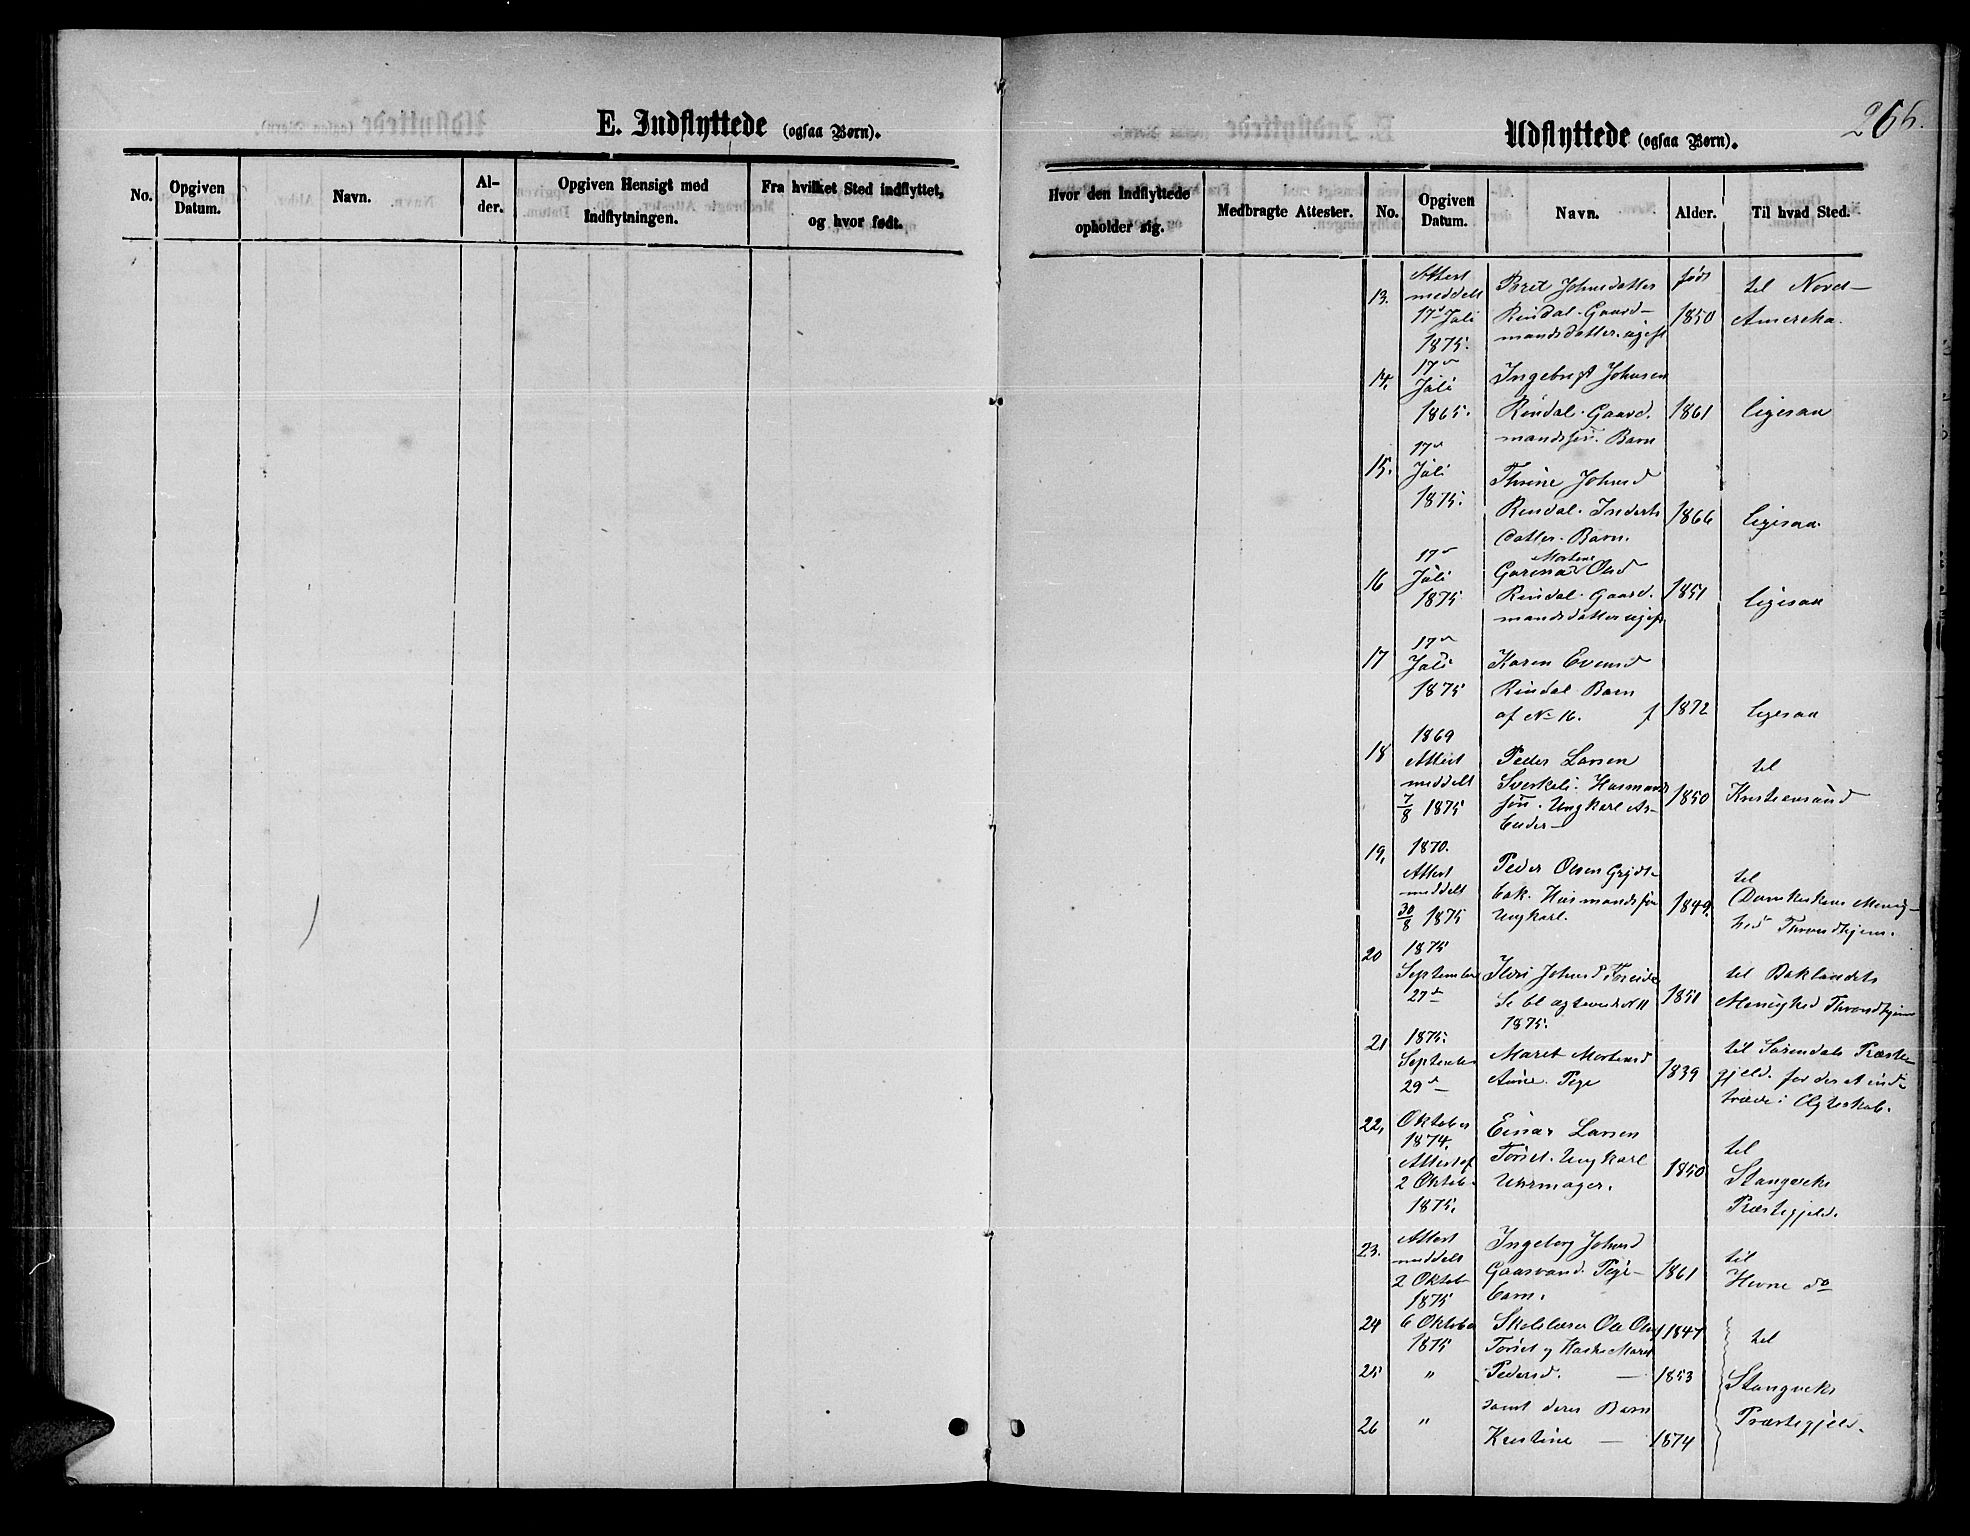 E. Indflyttede (ogsaa Børn).
No.
Opgiven Datum.
Navn.
Al-
der.
Opgiven Hensigt med
Indflytningen.
Fra hvilket Sted indflyttet,
og hvor født.
Udflyttede (ogsaa Børn).
266.
Hvor den Indflyttede
opholder sig.
Medbragte Attester.
No.
Opgiven Datum.
Navn.
Alder.
Til hvad Sted.
13. Attest meddelt 17de Juli 1875.
Beret Johnsdatter
Rindal. Gaard-
mandsdatter. ugift
født 1850
til Nord-
Amerika.
14. 17de Juli 1865.
Ingebrigt Johnsen
Rindal. Gaard.
mandssøn. Barn
1861
ligesaa
15. 17de Juli 1875.
Thrine Johnsd
Rindal. Inderst
datter. Barn.
1866
ligesaa
16 17de Juli 1875
Mortine
Olsd
Rindal. Gaard.
mandsdatter ugift
1851
ligesaa
17 17de Juli 1875
Karen Evensd
Rindal Barn
af No 16. f
1872
ligesaa
18 1869 Attest meddelt 7/8 1875
Peder Larsen
Husmands
søn. Ungkarl Ar-
beider
1850
til
Kristiansund
19. 1870. Attest meddelt 30/8 1875
Peder Olsen Grytt-
bak. Husmandssøn
Ungkarl.
1849.
til
Domkirkens Menig-
hed Throndhjem.
20 1875 September 27de
Johnsd
1875.
1851
til Baklandets
Menighed Throndhjem
21 1875. September 29de
Maret Mortensd
Aune. Pige
1839
til Surendals Præste-
gjeld. for der at ind-
træde i Ægteskab.
22. Oktober 1874. Attest af 2 Oktob. 1875.
Einar Larsen
Torset. Ungkarl
Uhrmager.
1850
til
Stangviks
Præstegjeld.
23. Attest meddelt 2 Oktob 1875
Ingeborg Johnsd
Gaasvand. Pige-
barn.
1861
til
Hevne do
24 6 Oktober 1875
Skolelærer Ole Olsen
Torset og Kone Maret
1847
til
25 "
Pedersd. —
1853
Stangviks
26 "
samt deres Barn
Kristine —
1874
Præstegjeld.